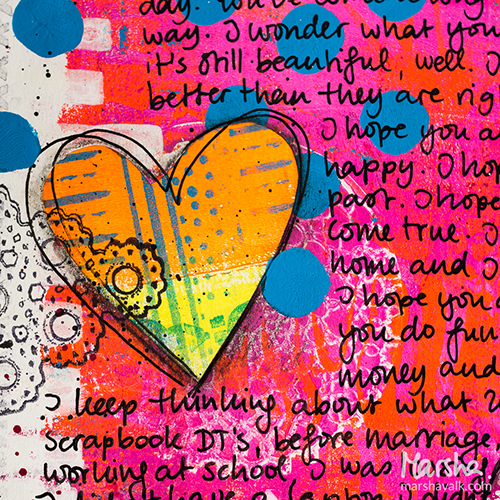 day. You've come a long
way. I wonder what you
it's still beautiful, well. I
better than they are rig
I hope you a
happy. I hop
part. I hope
come true. I
home and I
I hope you
you do fun
money and
I keep thinking about what
scrapbook DT's, before marriage,
working at school I was
Marsha
marshavalk.com